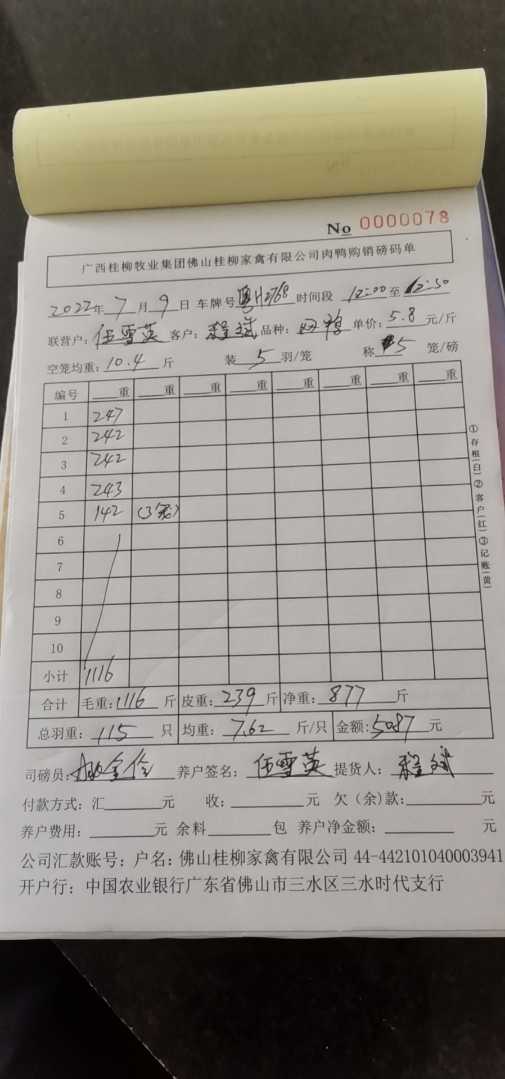 No 0000078
广西桂柳牧业集团佛山桂柳家禽有限公司肉鸭购销磅码单
2022年 7 月 9 日 车牌号 粤H2768 时间段 12:00 至 12:50
联营户: 伍雪英 客户: 程斌 品种: 单价: 5.8 元/斤
空笼均重: 10.4 斤 装 5 羽/笼 称 5 笼/磅
编号 重 重 重 重 重 重 重 重
1 247
2 242
3 242
4 243
5 142 (3笼)
6
7
8
9
10
小计 1116
合计 毛重: 1116 斤 皮重: 239 斤 净重: 877 斤
总羽重: 115 只 均重: 7.62 斤/只 金额: 5087 元
司磅员: 养户签名: 伍雪英 提货人: 程斌
付款方式: 汇 元 收: 元 欠 (余) 款: 元
养户费用: 元 余料 包 养户净金额: 元
公司汇款账号: 户名: 佛山桂柳家禽有限公司 44-442101040003941
开户行: 中国农业银行广东省佛山市三水区三水时代支行
①存根(白)②客户(红)③记账(黄)